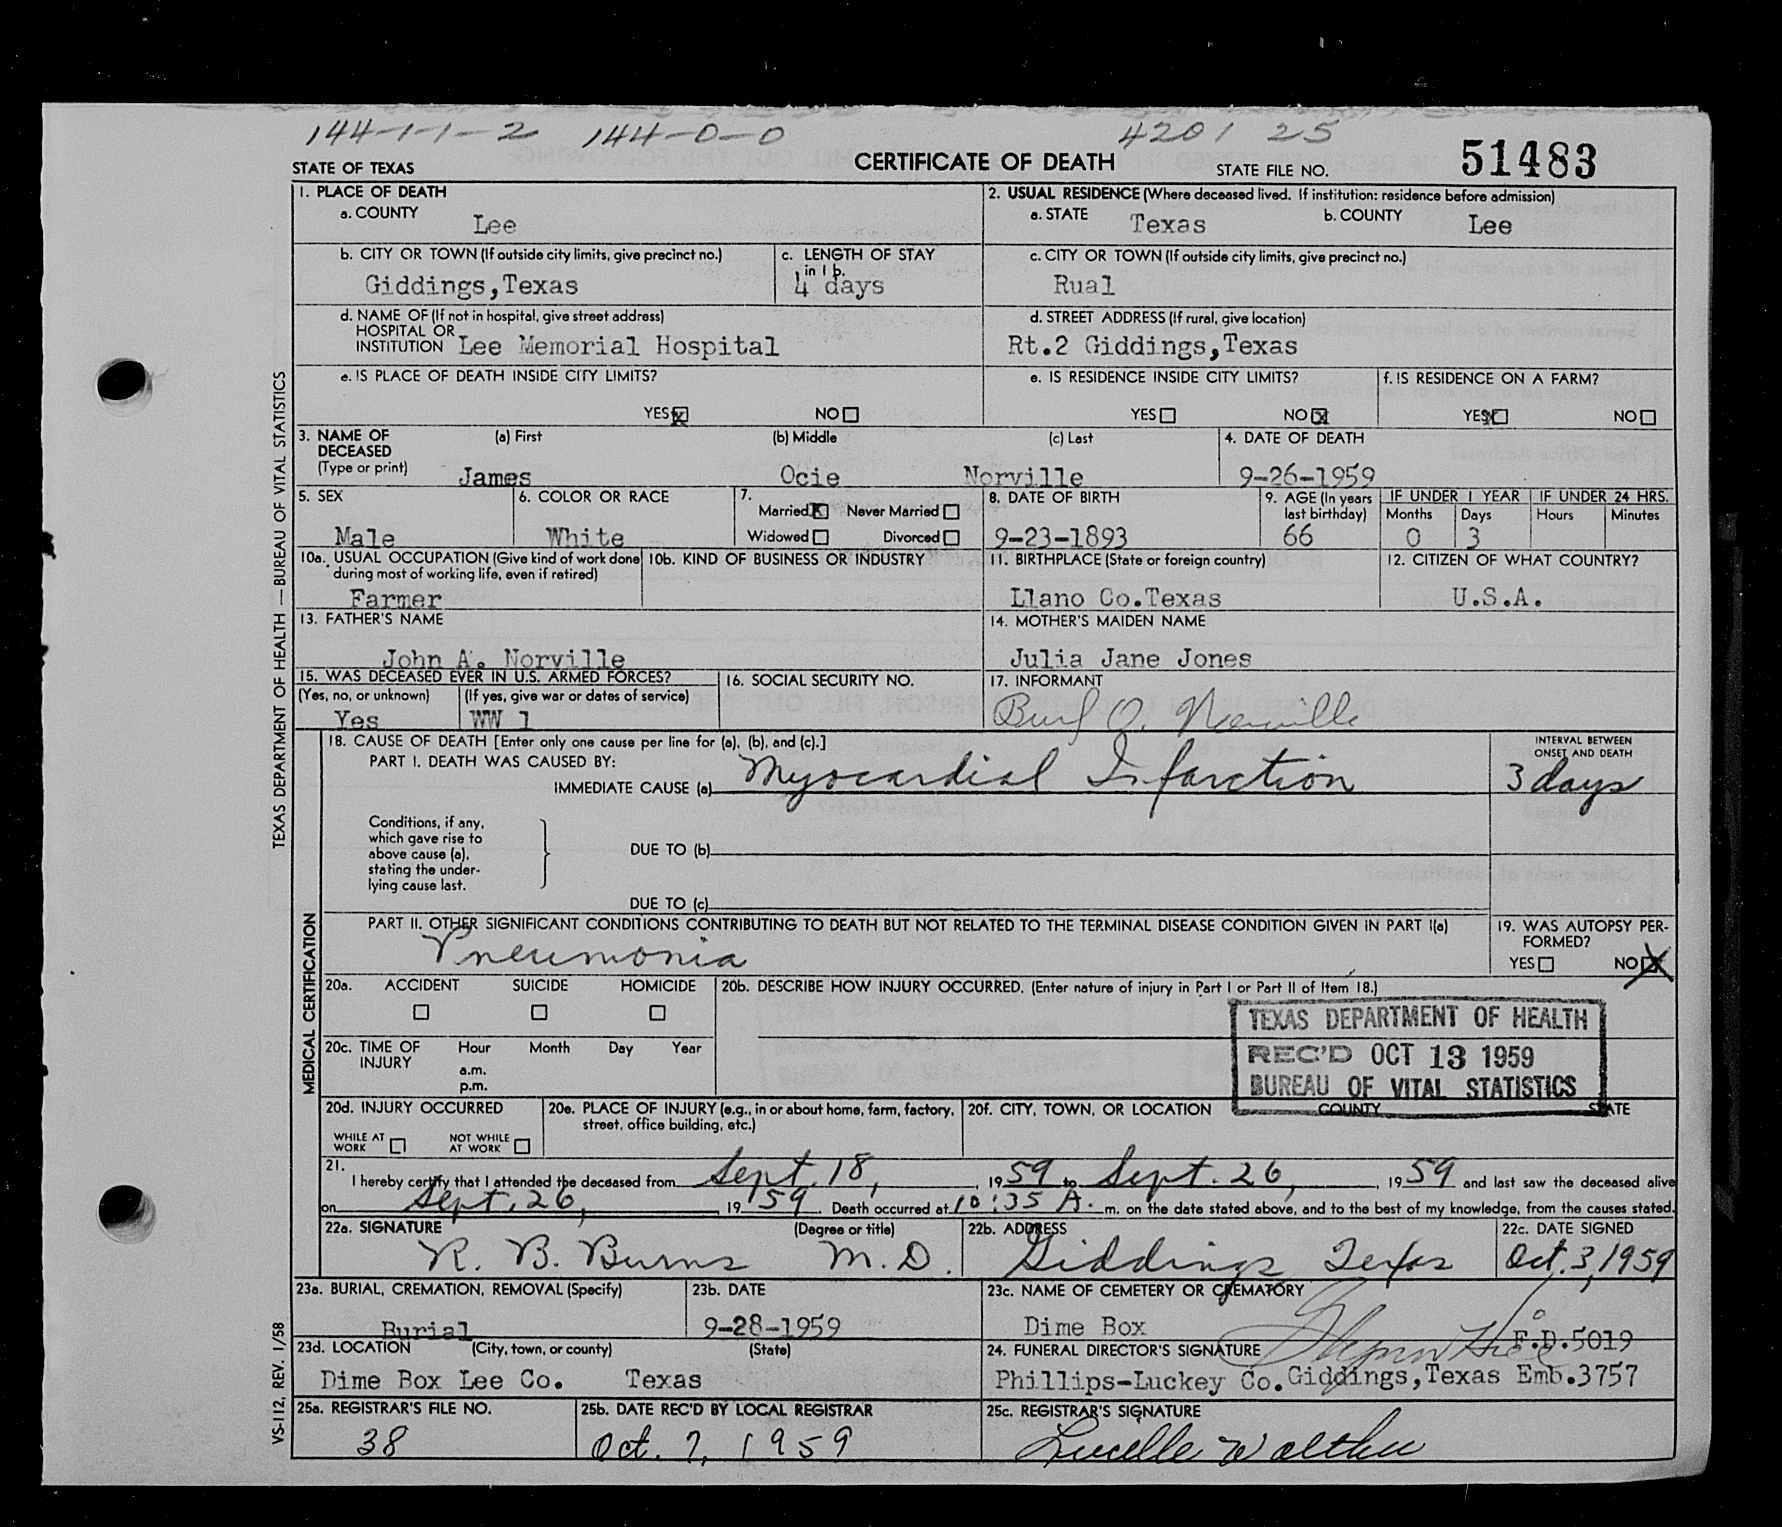 144-1-1-2 144-0-0 4201 25
STATE OF TEXAS CERTIFICATE OF DEATH STATE FILE NO. 51483
1. PLACE OF DEATH
a. COUNTY Lee
2. USUAL RESIDENCE (Where deceased lived. If institution: residence before admission)
a. STATE Texas b. COUNTY Lee
b. CITY OR TOWN (If outside city limits, give precinct no.)
Giddings,Texas
c. LENGTH OF STAY
in 1 b.
4 days
c. CITY OR TOWN (If outside city limits, give precinct no.)
Rual
d. NAME OF (If not in hospital, give street address)
HOSPITAL OR
INSTITUTION Lee Memorial Hospital
d. STREET ADDRESS (If rural, give location)
Rt.2 Giddings,Texas
e. IS PLACE OF DEATH INSIDE CITY LIMITS?
YES x NO
e. IS RESIDENCE INSIDE CITY LIMITS?
YES NO x
f. IS RESIDENCE ON A FARM?
YES x NO
3. NAME OF DECEASED (Type or print)
(a) First (b) Middle (c) Last
James Ocie Norville
4. DATE OF DEATH
9-26-1959
5. SEX
Male
6. COLOR OR RACE
White
7.
Married x Never Married
Widowed Divorced
8. DATE OF BIRTH
9-23-1893
9. AGE (In years last birthday)
66
IF UNDER 1 YEAR IF UNDER 24 HRS.
Months Days Hours Minutes
0 3
10a. USUAL OCCUPATION (Give kind of work done
during most of working life, even if retired)
Farmer
10b. KIND OF BUSINESS OR INDUSTRY
11. BIRTHPLACE (State or foreign country)
Llano Co.Texas
12. CITIZEN OF WHAT COUNTRY?
U.S.A.
13. FATHER'S NAME
John A. Norville
14. MOTHER'S MAIDEN NAME
Julia Jane Jones
15. WAS DECEASED EVER IN U.S. ARMED FORCES?
(Yes, no, or unknown) (If yes, give war or dates of service)
Yes WW 1
16. SOCIAL SECURITY NO.
17. INFORMANT
Burl O. Norville
18. CAUSE OF DEATH [Enter only one cause per line for (a), (b), and (c).]
PART I. DEATH WAS CAUSED BY:
IMMEDIATE CAUSE (a) Myocardial Infarction
INTERVAL BETWEEN
ONSET AND DEATH
3 days
Conditions, if any,
which gave rise to
above cause (a),
stating the under-
lying cause last.
DUE TO (b)
DUE TO (c)
PART II. OTHER SIGNIFICANT CONDITIONS CONTRIBUTING TO DEATH BUT NOT RELATED TO THE TERMINAL DISEASE CONDITION GIVEN IN PART I(a)
Pneumonia
19. WAS AUTOPSY PER-
FORMED?
YES NO X
20a. ACCIDENT SUICIDE HOMICIDE
20b. DESCRIBE HOW INJURY OCCURRED. (Enter nature of injury in Part I or Part II of Item 18.)
20c. TIME OF INJURY Hour Month Day Year
a.m.
p.m.
TEXAS DEPARTMENT OF HEALTH
REC'D OCT 13 1959
BUREAU OF VITAL STATISTICS
20d. INJURY OCCURRED
WHILE AT WORK NOT WHILE AT WORK
20e. PLACE OF INJURY (e.g., in or about home, farm, factory,
street, office building, etc.)
20f. CITY, TOWN, OR LOCATION COUNTY STATE
21.
I hereby certify that I attended the deceased from Sept. 18, , 1959 to Sept. 26, , 1959 and last saw the deceased alive
on Sept. 26, 1959. Death occurred at 10:35 A. m. on the date stated above, and to the best of my knowledge, from the causes stated.
22a. SIGNATURE (Degree or title)
R. B. Burns M.D.
22b. ADDRESS
Giddings Texas
22c. DATE SIGNED
Oct. 3, 1959
23a. BURIAL, CREMATION, REMOVAL (Specify)
Burial
23b. DATE
9-28-1959
23c. NAME OF CEMETERY OR CREMATORY
Dime Box
23d. LOCATION (City, town, or county) (State)
Dime Box Lee Co. Texas
24. FUNERAL DIRECTOR'S SIGNATURE F.D.5019
Phillips-Luckey Co.Giddings,Texas Emb.3757
25a. REGISTRAR'S FILE NO.
38
25b. DATE REC'D BY LOCAL REGISTRAR
Oct. 7, 1959
25c. REGISTRAR'S SIGNATURE
Lucille
TEXAS DEPARTMENT OF HEALTH — BUREAU OF VITAL STATISTICS
MEDICAL CERTIFICATION
VS-112, REV. 1/58